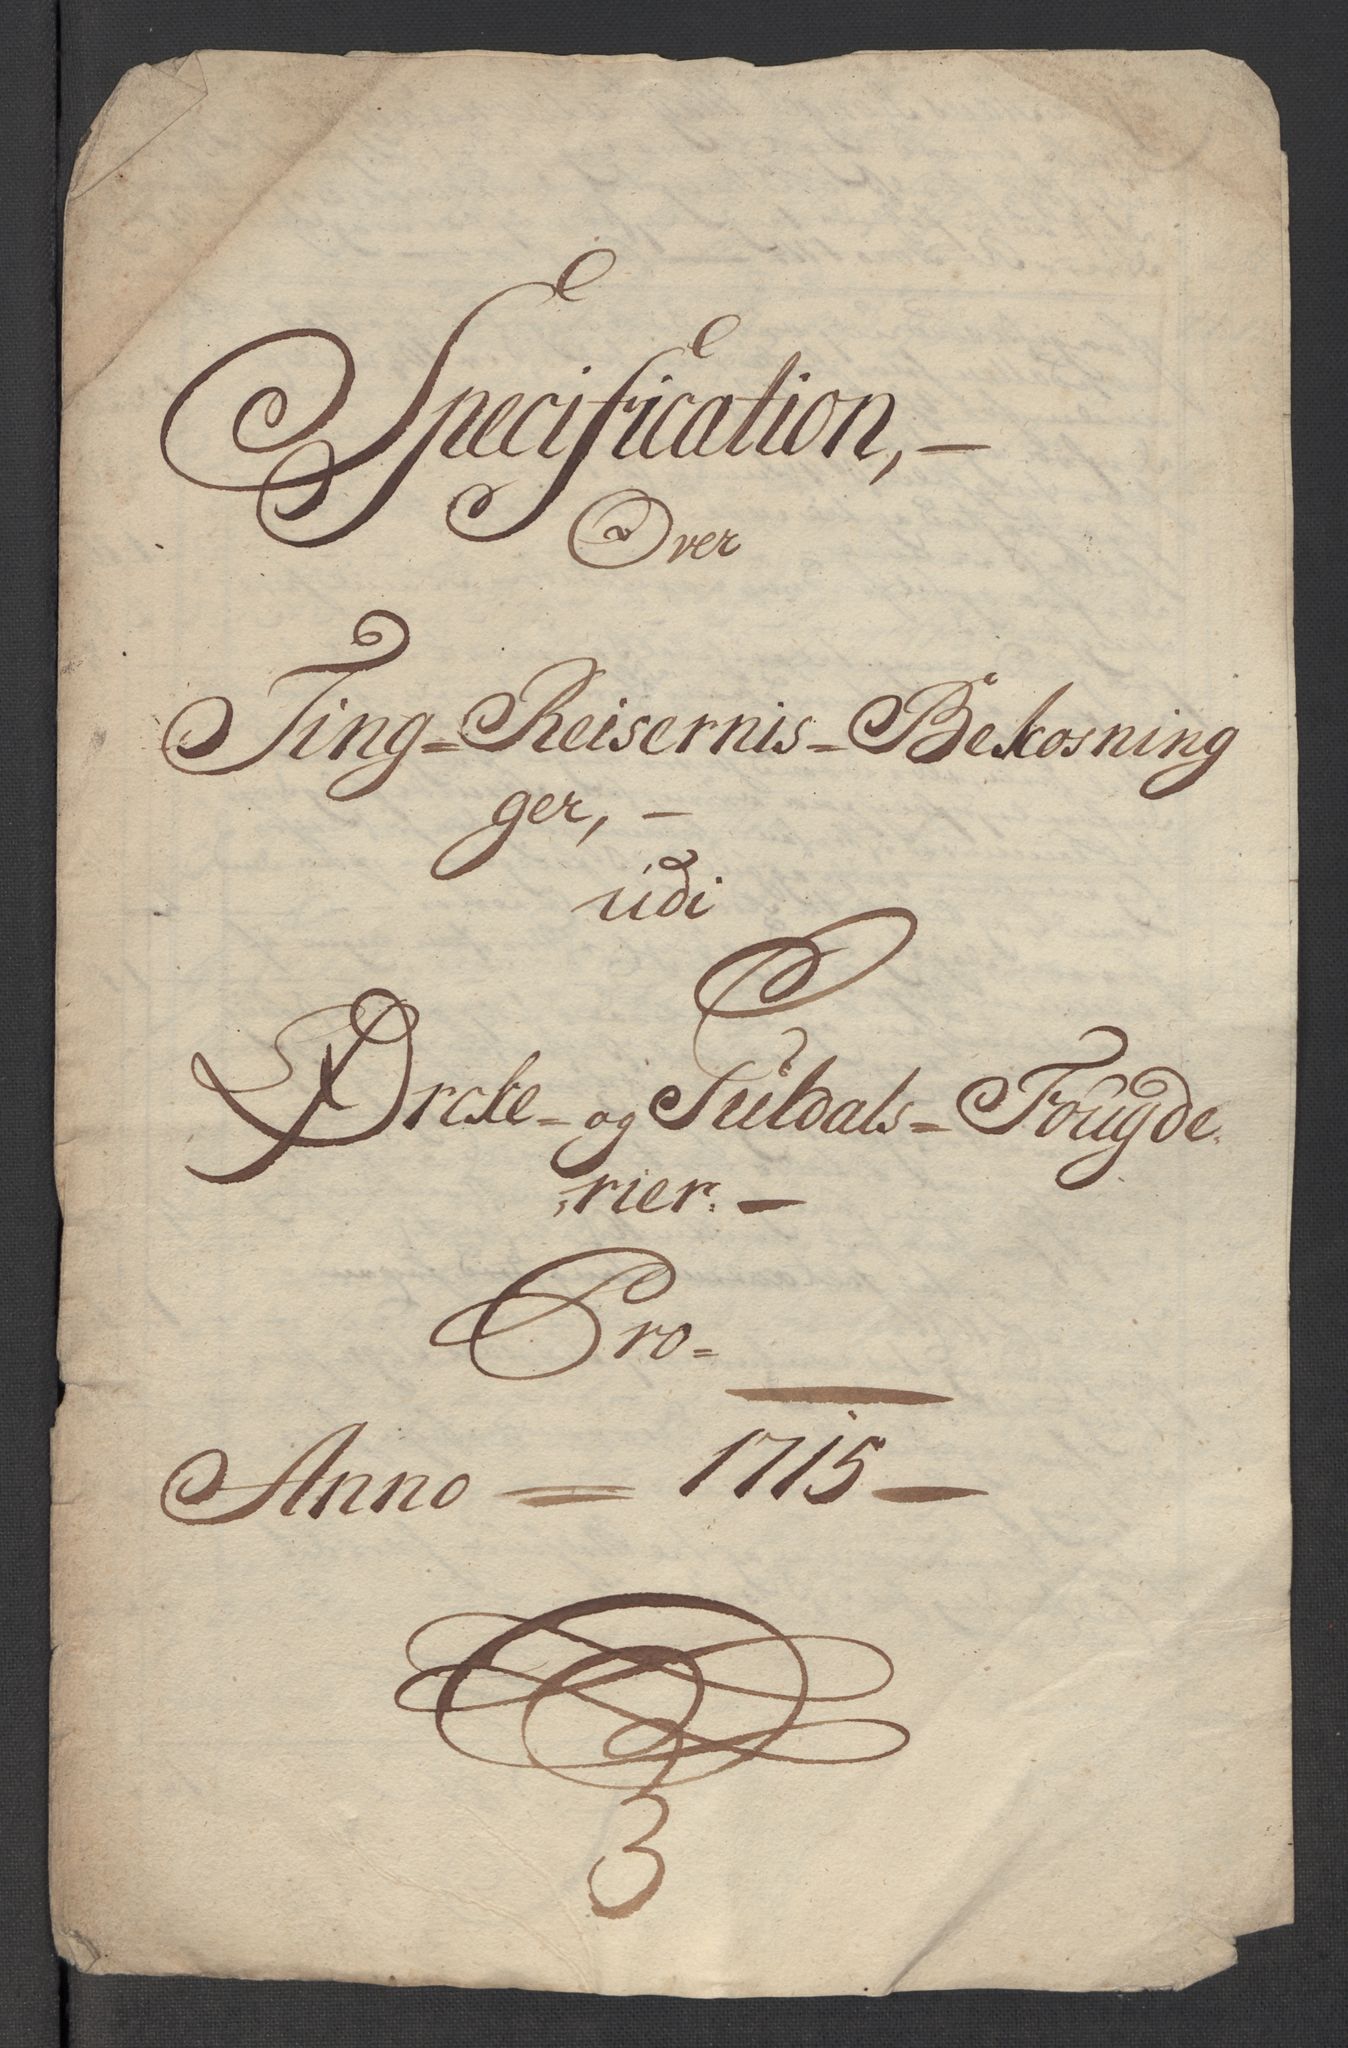 Specification, —
Over
Ting=Reisernis=Bekosning
ger, —
udi
Ørcke= og Guldals=Fougde
rier. —
Pro=
Anno = 1715 —
3